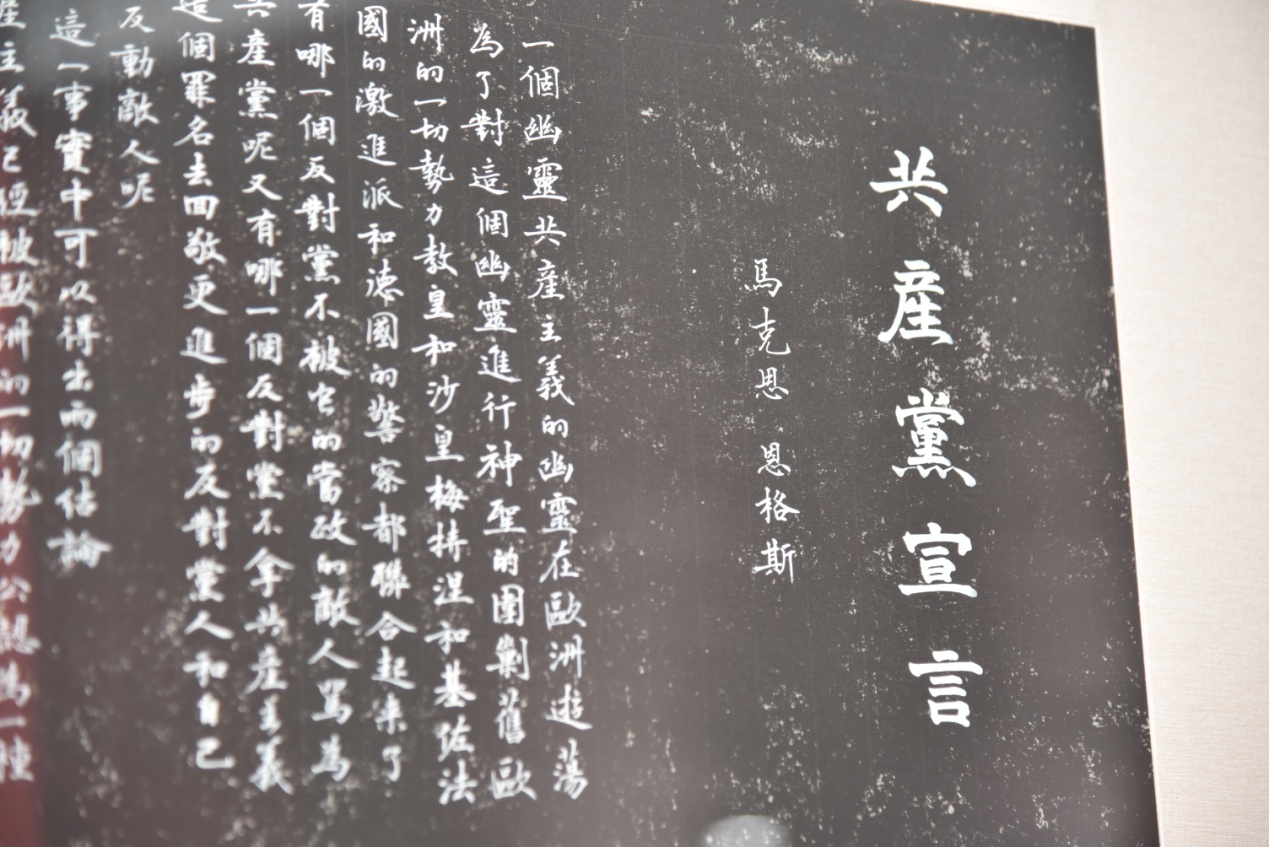 共產黨宣言
馬克思 恩格斯
一個幽靈共產主義的幽靈在歐洲遊蕩
為了對這個幽靈進行神聖的圍剿舊歐
洲的一切勢力教皇和沙皇梅特涅和基佐法
國的激進派和德國的警察都聯合起來了
有哪一個反對黨不被它的當政的敵人罵為
共產黨呢又有哪一個反對黨不拿共產主義
這個罪名去回敬更進步的反對黨人和自己
反動敵人呢
這一事實中可以得出兩個結論
產主義已經被歐洲的一切勢力公認為一種